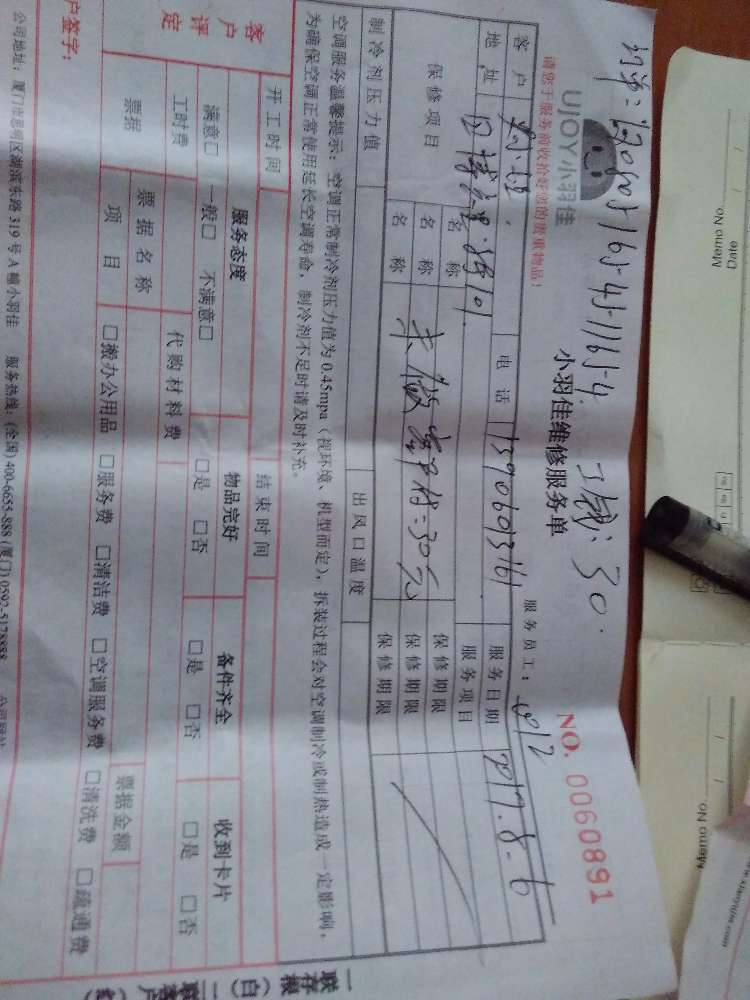 Memo No.
Date
Memo No.
UJOY小羽佳
小羽佳维修服务单
NO. 0060891
请您于服务前收拾好您的贵重物品!
服务员工: 812
客户
电话 13906013161
服务日期 2017.8.6
地址
服务项目
保修项目
名称
保修期限
名称
保修期限
名称
保修期限
制冷剂压力值
出风口温度
空调服务温馨提示: 空调正常制冷剂压力值为0.45mpa (视环境、机型而定), 拆装过程会对空调制冷或制热造成一定影响,
为确保空调正常使用延长空调寿命, 制冷剂不足时请及时补充。
开工时间
结束时间
客户评定
服务态度
物品完好
备件齐全
收到卡片
满意□ 一般□ 不满意□
□是 □否
□是 □否
□是 □否
工时费
代购材料费
票据
票据名称
票据金额
项目
□搬办公用品 □服务费 □清洁费 □空调服务费 □清洗费 □疏通费
户签字:
公司地址: 厦门市思明区湖滨东路319号A幢小羽佳 服务热线: (全国) 400-6655-888 (厦门) 0592-5178888